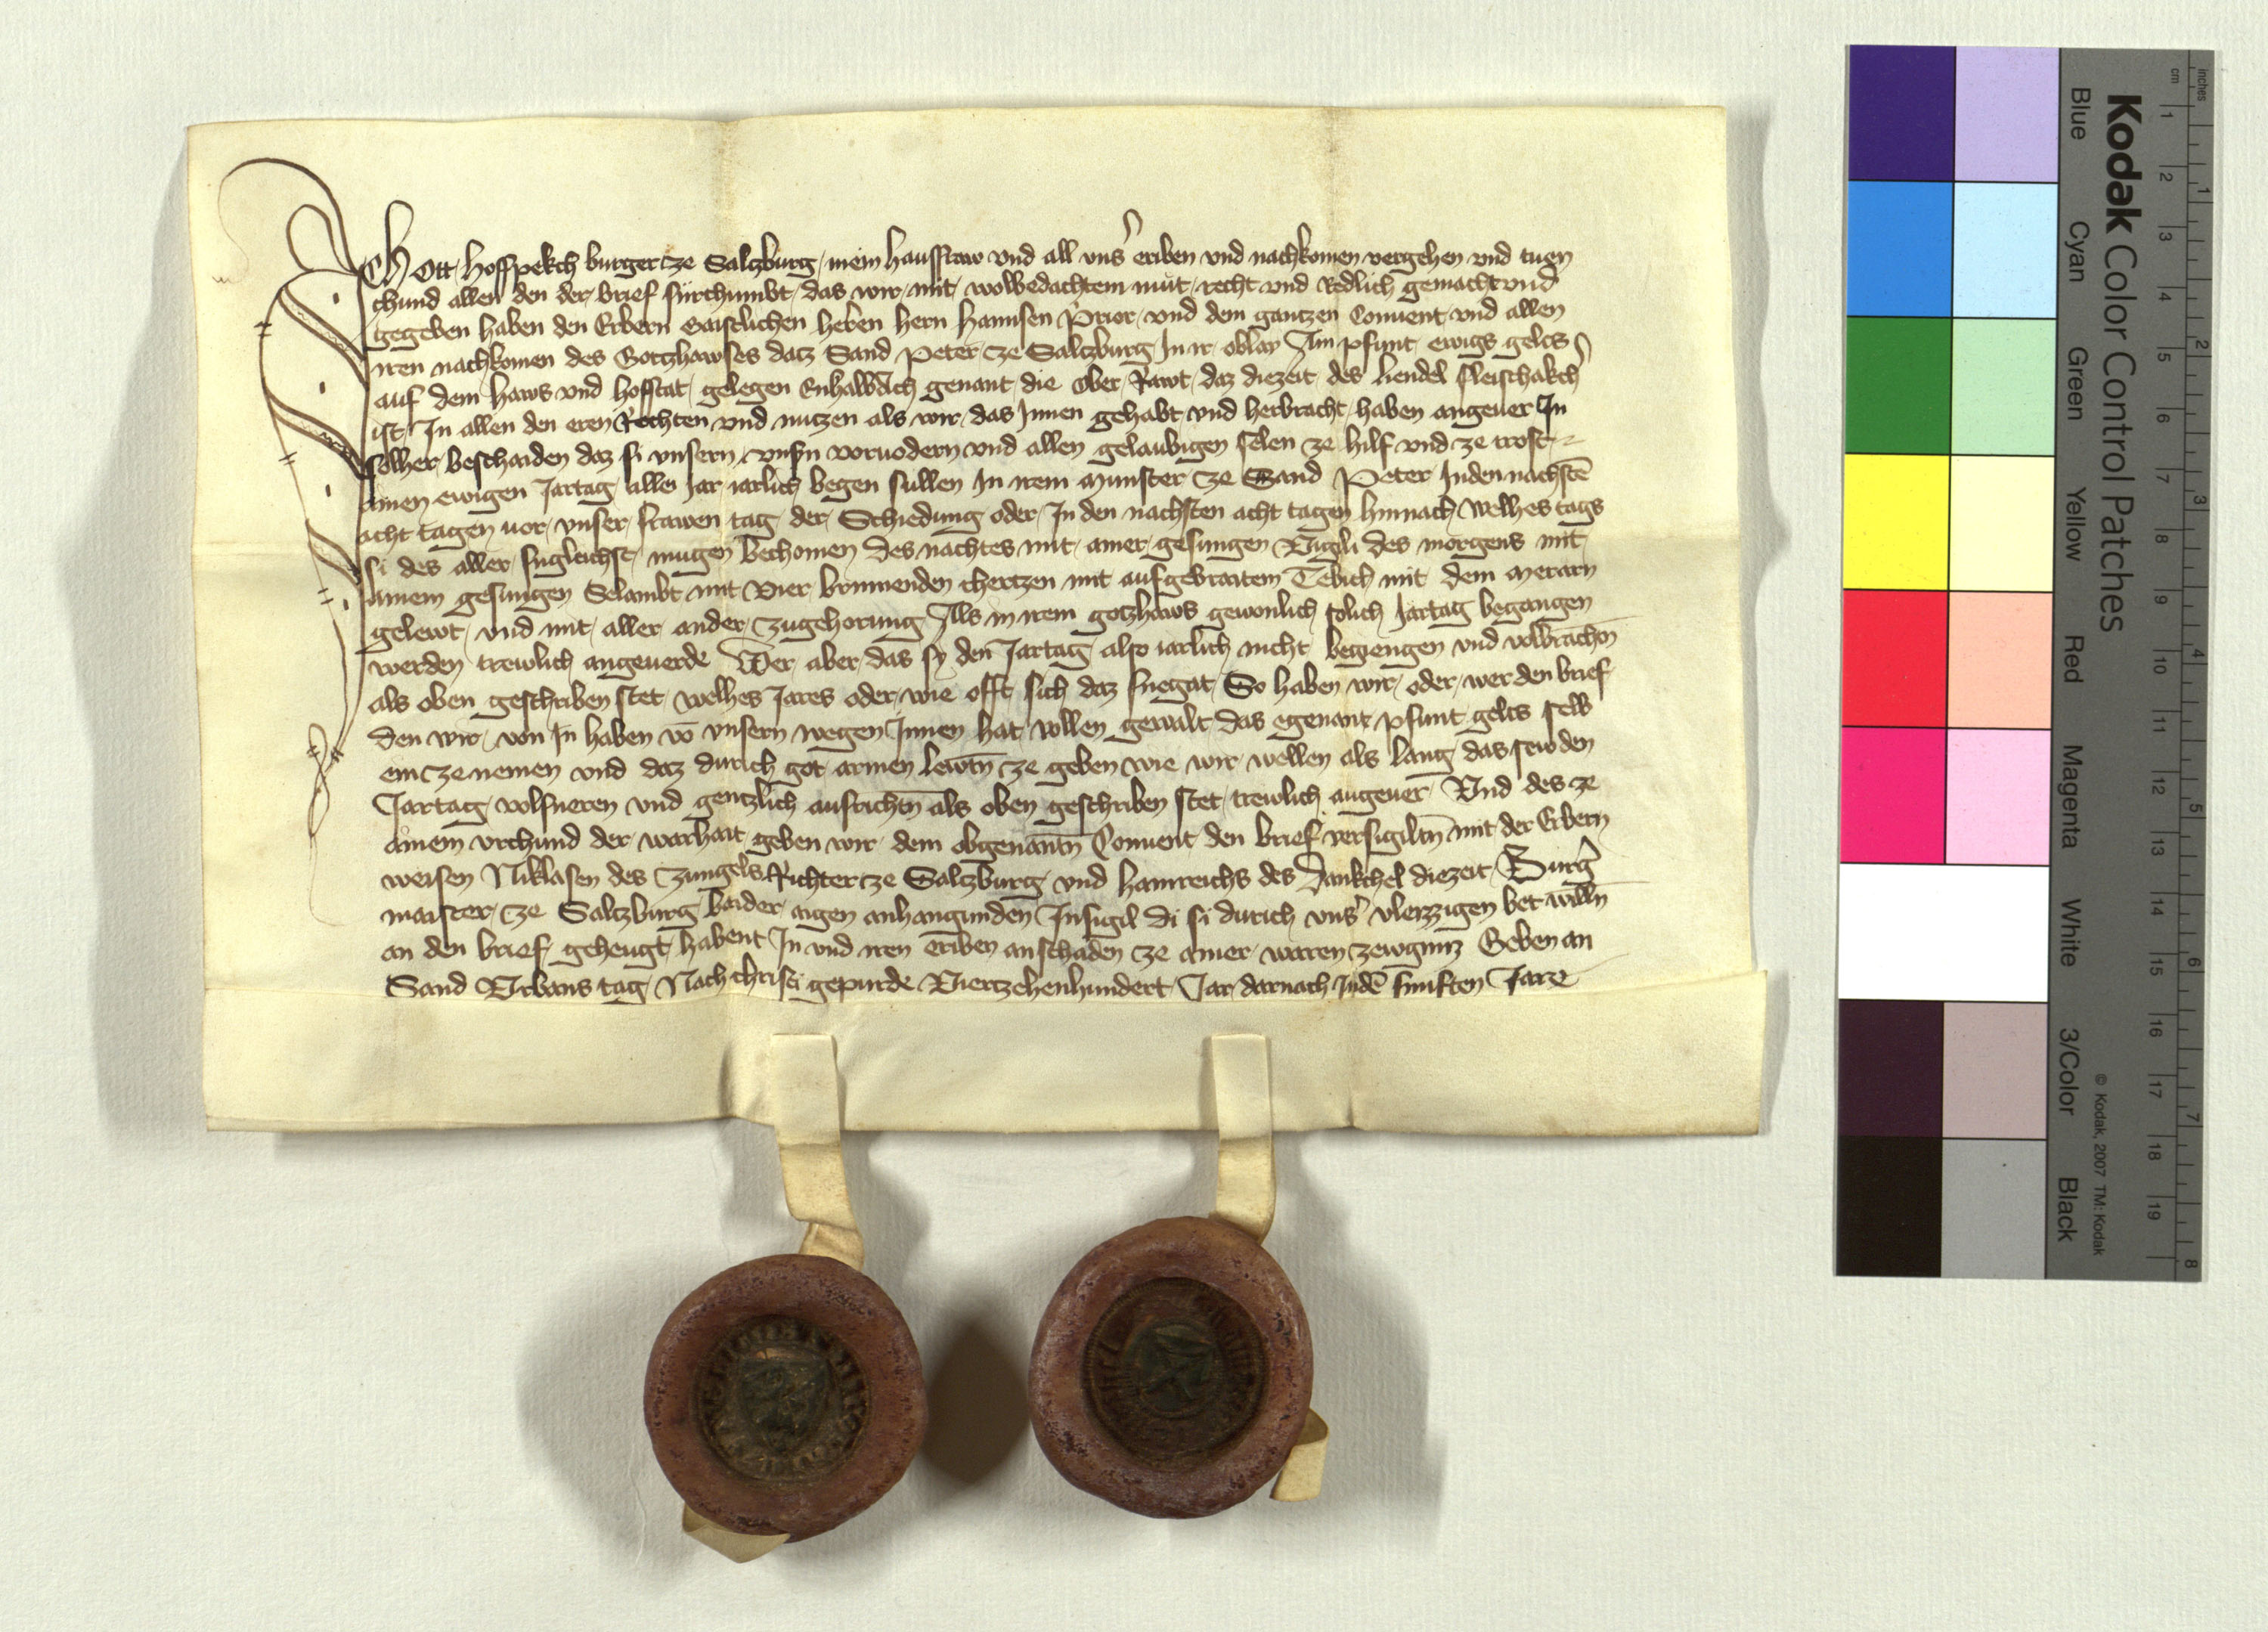 ICH Ott Hoffpekch burger ze Salczburg mein hausfraw vnd all vns erben vnd nachkomen vergehen vnd tuen
chund allen den der brief fürchumbt das wir mit wolbedachtem mut recht vnd redlich gemacht vnd
gegeben haben den Erbern Gaistlichen herren hern Hannsen Prior vnd dem gantzen Conuent vnd allen
iren nachkomen des Gotzhawses datz Sand Peter ze Salczburg In ir oblay Ain pfunt ewigs gelts
auf dem haws vnd hofstat gelegen Enhalb Ach genant die Ober Rawt daz diezeit des liendel fleischakch
ist In allen den eren Rechten vnd nutzen als wir das Innen gehabt vnd herbracht haben angeuer In
solher beschaiden daz si vnsern vnsn voruodern vnd allen gelaubigen selen ze hilf vnd ze trost
ainen ewigen Jartag alle Jar iarlich begen sullen In irem Munster ze Sand Peter In den nachstē
acht tagen vor vnser frawen tag der Schiedung oder In den nachsten acht tagen hinnach Welhes tags
si des aller fugleichst mugen bechomen des nachtes mit ainer gesungen Vigili des morgens mit
ainem gesungen Selambt mit Vier brinnenden chertzen mit aufgebraitem Tebich mit dem merern
gelewt vnd mit aller ander zugehorung Als in irem gotzhaws gewonlich solich Jartag begangen
werden trewlich angeuerde Wer aber das sy den Jartag also iarlich nicht begiengen vnd volbrachn
als oben geschriben stet welhes Jares oder wie offt sich daz fuegat So haben wir oder wer den brief
den wir von In haben vō vnsern wegen Innen hat vollen gewalt das egenant pfunt gelts selb
ein ze nemen vnd daz durich got armen lewtn ze geben wie wir wellen als lang das sew den
Jartag volfueren vnd gentzlich ausrichtn als oben geschriben stet trewlich angeuer Vnd des ze
ainem vrchund der warhait geben wir dem obgenantn Conuent den brief versigiltn mit der Erbern
weisen Niklasen des Zungels Richter ze Salczburg vnd hainreichs des Dankchel diezeit Burg
maister ze Salczburg baider aigen anhangunden Insigil di si durich vns vleizzigen bet willn
an den brief gehengt habent In vnd iren eriben an schaden ze ainer waren zewgnuz Geben an
Sand Vrbans tag Nach christi gepurde Viertzehenhundert Jar darnach In dē funften Jare
Kodak Color Control Patches
Blue Cyan Green Yellow Red Magenta White 3/Color Black
© Kodak, 2007 TM: Kodak
inches 1 2 3 4 5 6 7 8
cm 1 2 3 4 5 6 7 8 9 10 11 12 13 14 15 16 17 18 19